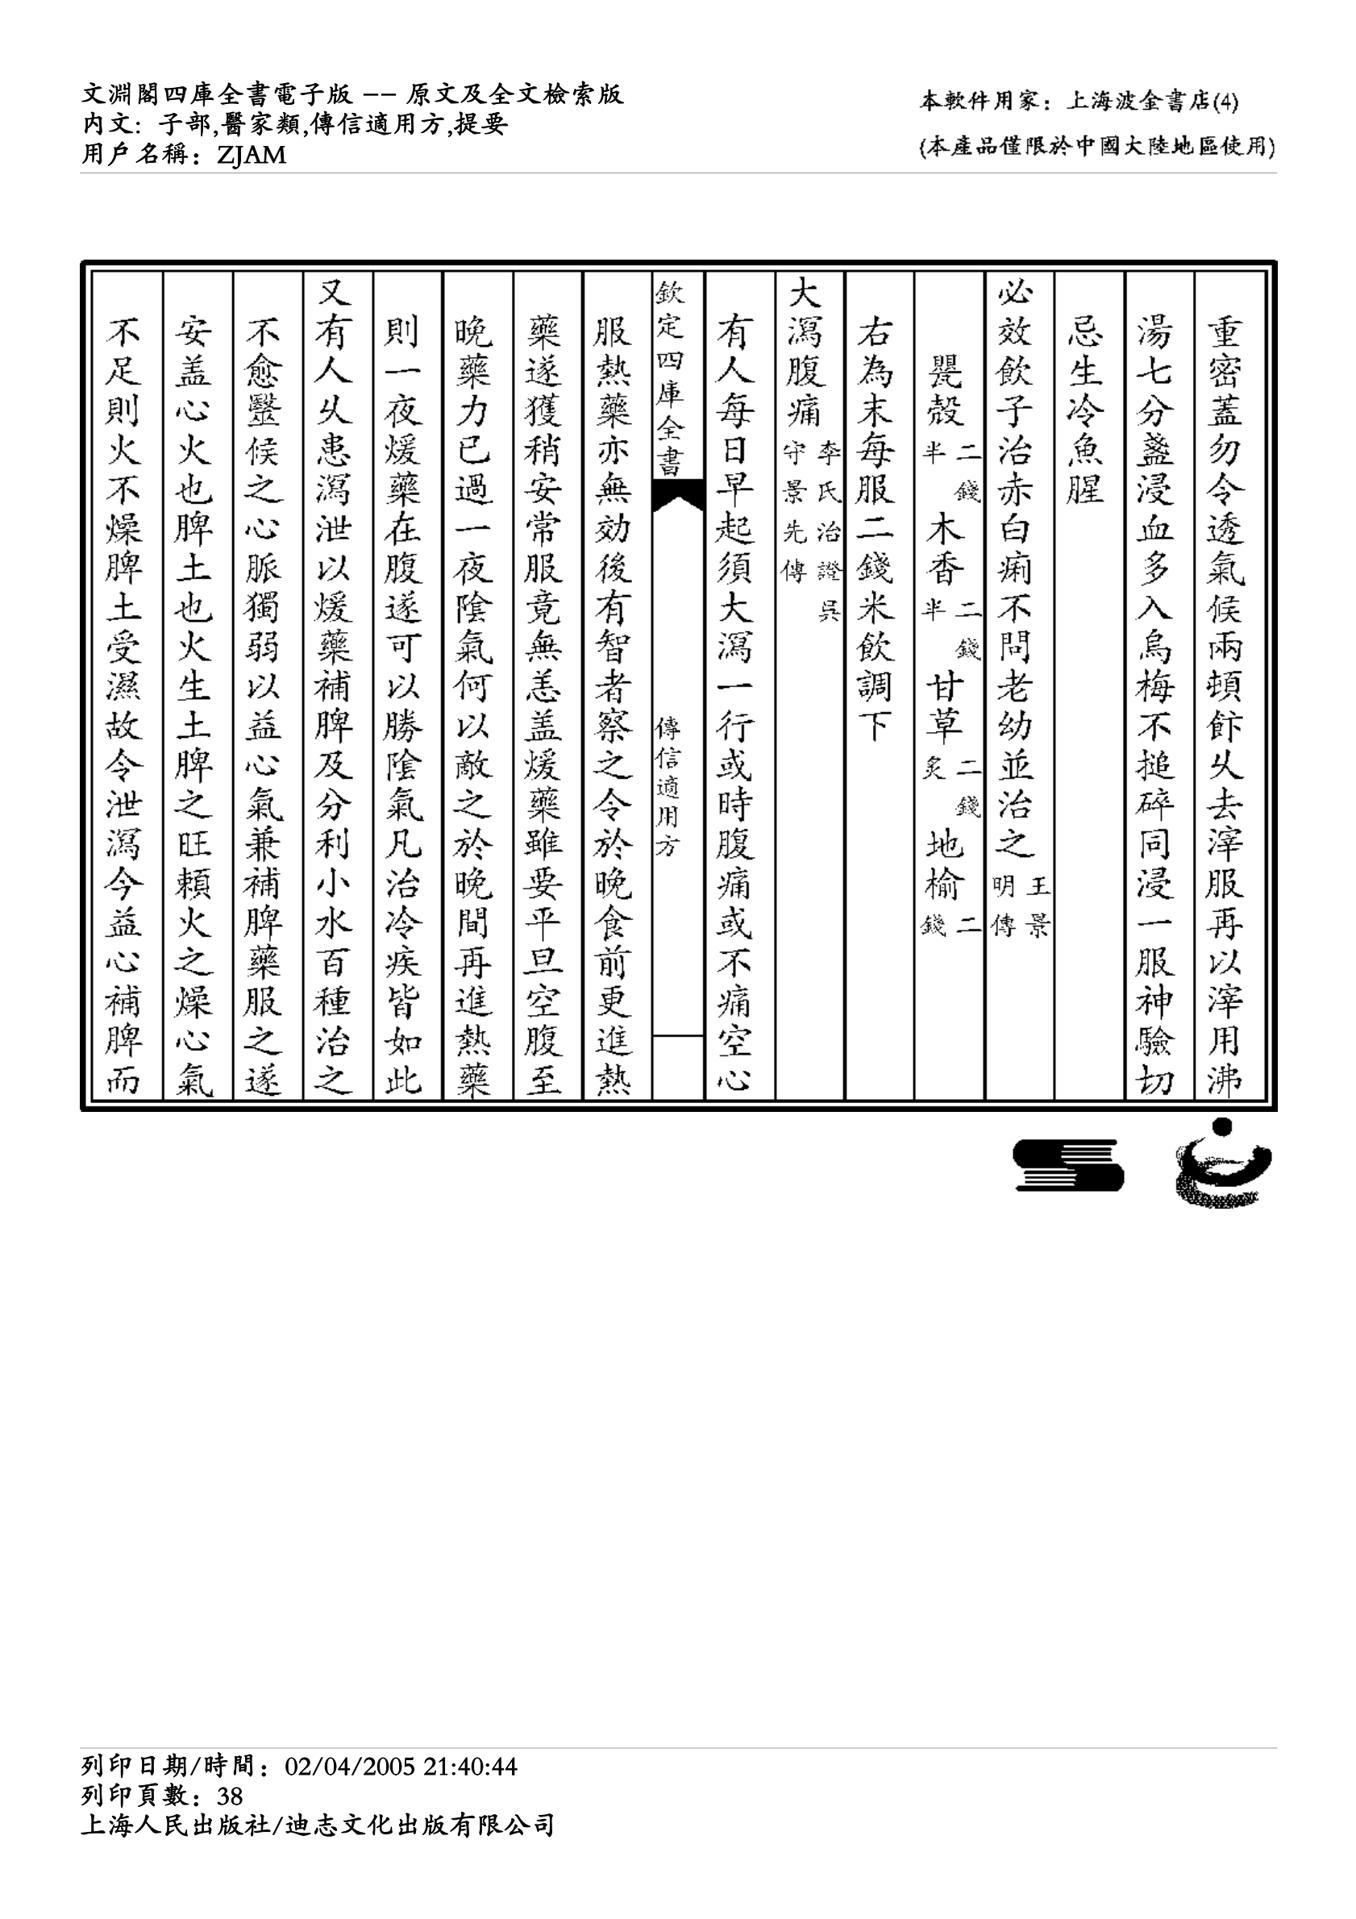 文淵閣四庫全書電子版 -- 原文及全文檢索版
内文: 子部,醫家類,傳信適用方,提要
用戶名稱: ZJAM
本軟件用家: 上海波金書店(4)
(本產品僅限於中國大陸地區使用)
重密蓋勿令透氣候兩頓飰乆去滓服再以滓用沸
湯七分盞浸血多入烏梅不搥碎同浸一服神驗切
忌生冷魚腥
必效飲子治赤白痢不問老幼並治之王景明傳
甖殼二錢半木香二錢半甘草二錢炙地榆二錢
右為末每服二錢米飲調下
大瀉腹痛李氏治證吳守景先傳
有人每日早起須大瀉一行或時腹痛或不痛空心
欽定四庫全書
傳信適用方
服熱藥亦無効後有智者察之令於晚食前更進熱
藥遂獲稍安常服竟無恙盖煖藥雖要平旦空腹至
晚藥力已過一夜隂氣何以敵之於晚間再進熱藥
則一夜煖藥在腹遂可以勝隂氣凡治冷疾皆如此
又有人乆患瀉泄以煖藥補脾及分利小水百種治之
不愈毉候之心脈獨弱以益心氣兼補脾藥服之遂
安盖心火也脾土也火生土脾之旺頼火之燥心氣
不足則火不燥脾土受濕故令泄瀉今益心補脾而
列印日期/時間: 02/04/2005 21:40:44
列印頁數: 38
上海人民出版社/迪志文化出版有限公司